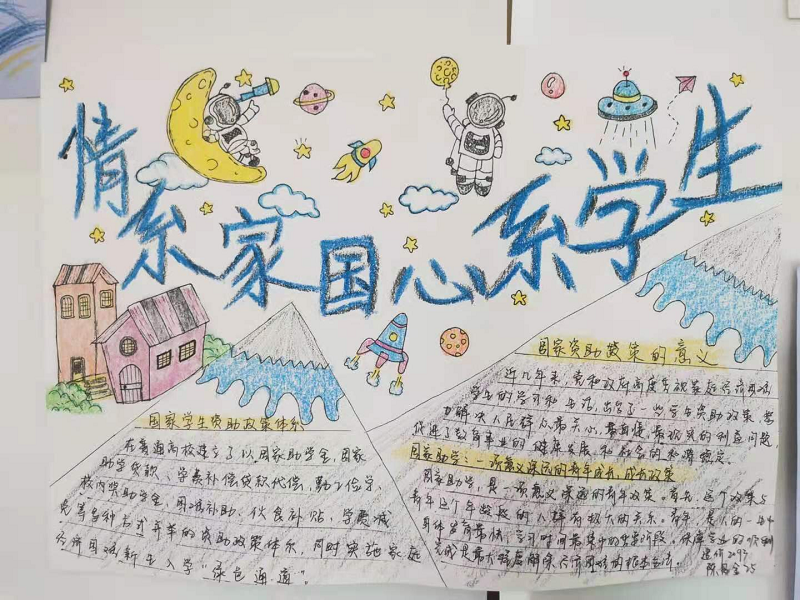 情系家国心系学生
国家学生资助政策体系
在普通高校建立了以国家助学金,国家
助学贷款、学费补偿贷款代偿,勤工俭学,
校内奖助学金,困难补助、伙食补贴,学费减
免等多种方式并举的资助政策体系,同时实施家庭
经济困难新生入学“绿色通道”。
国家资助政策的意义
近几年来,党和政府高度重视家庭经济困难
学生的学习和生活,出台了一些学生资助政策,
力解决人民群众最关心、最直接、最现实的利益问题,
促进了教育事业的健康发展和社会的和谐稳定。
国家助学:一项意义深远的青年成长,成才政策
国家助学,是一项意义深远的青年政策。首先,这个政策与
青年这个年龄段的人群有极大的关系。青年,是人的一生中
身体发育最快,学习时间最集中的